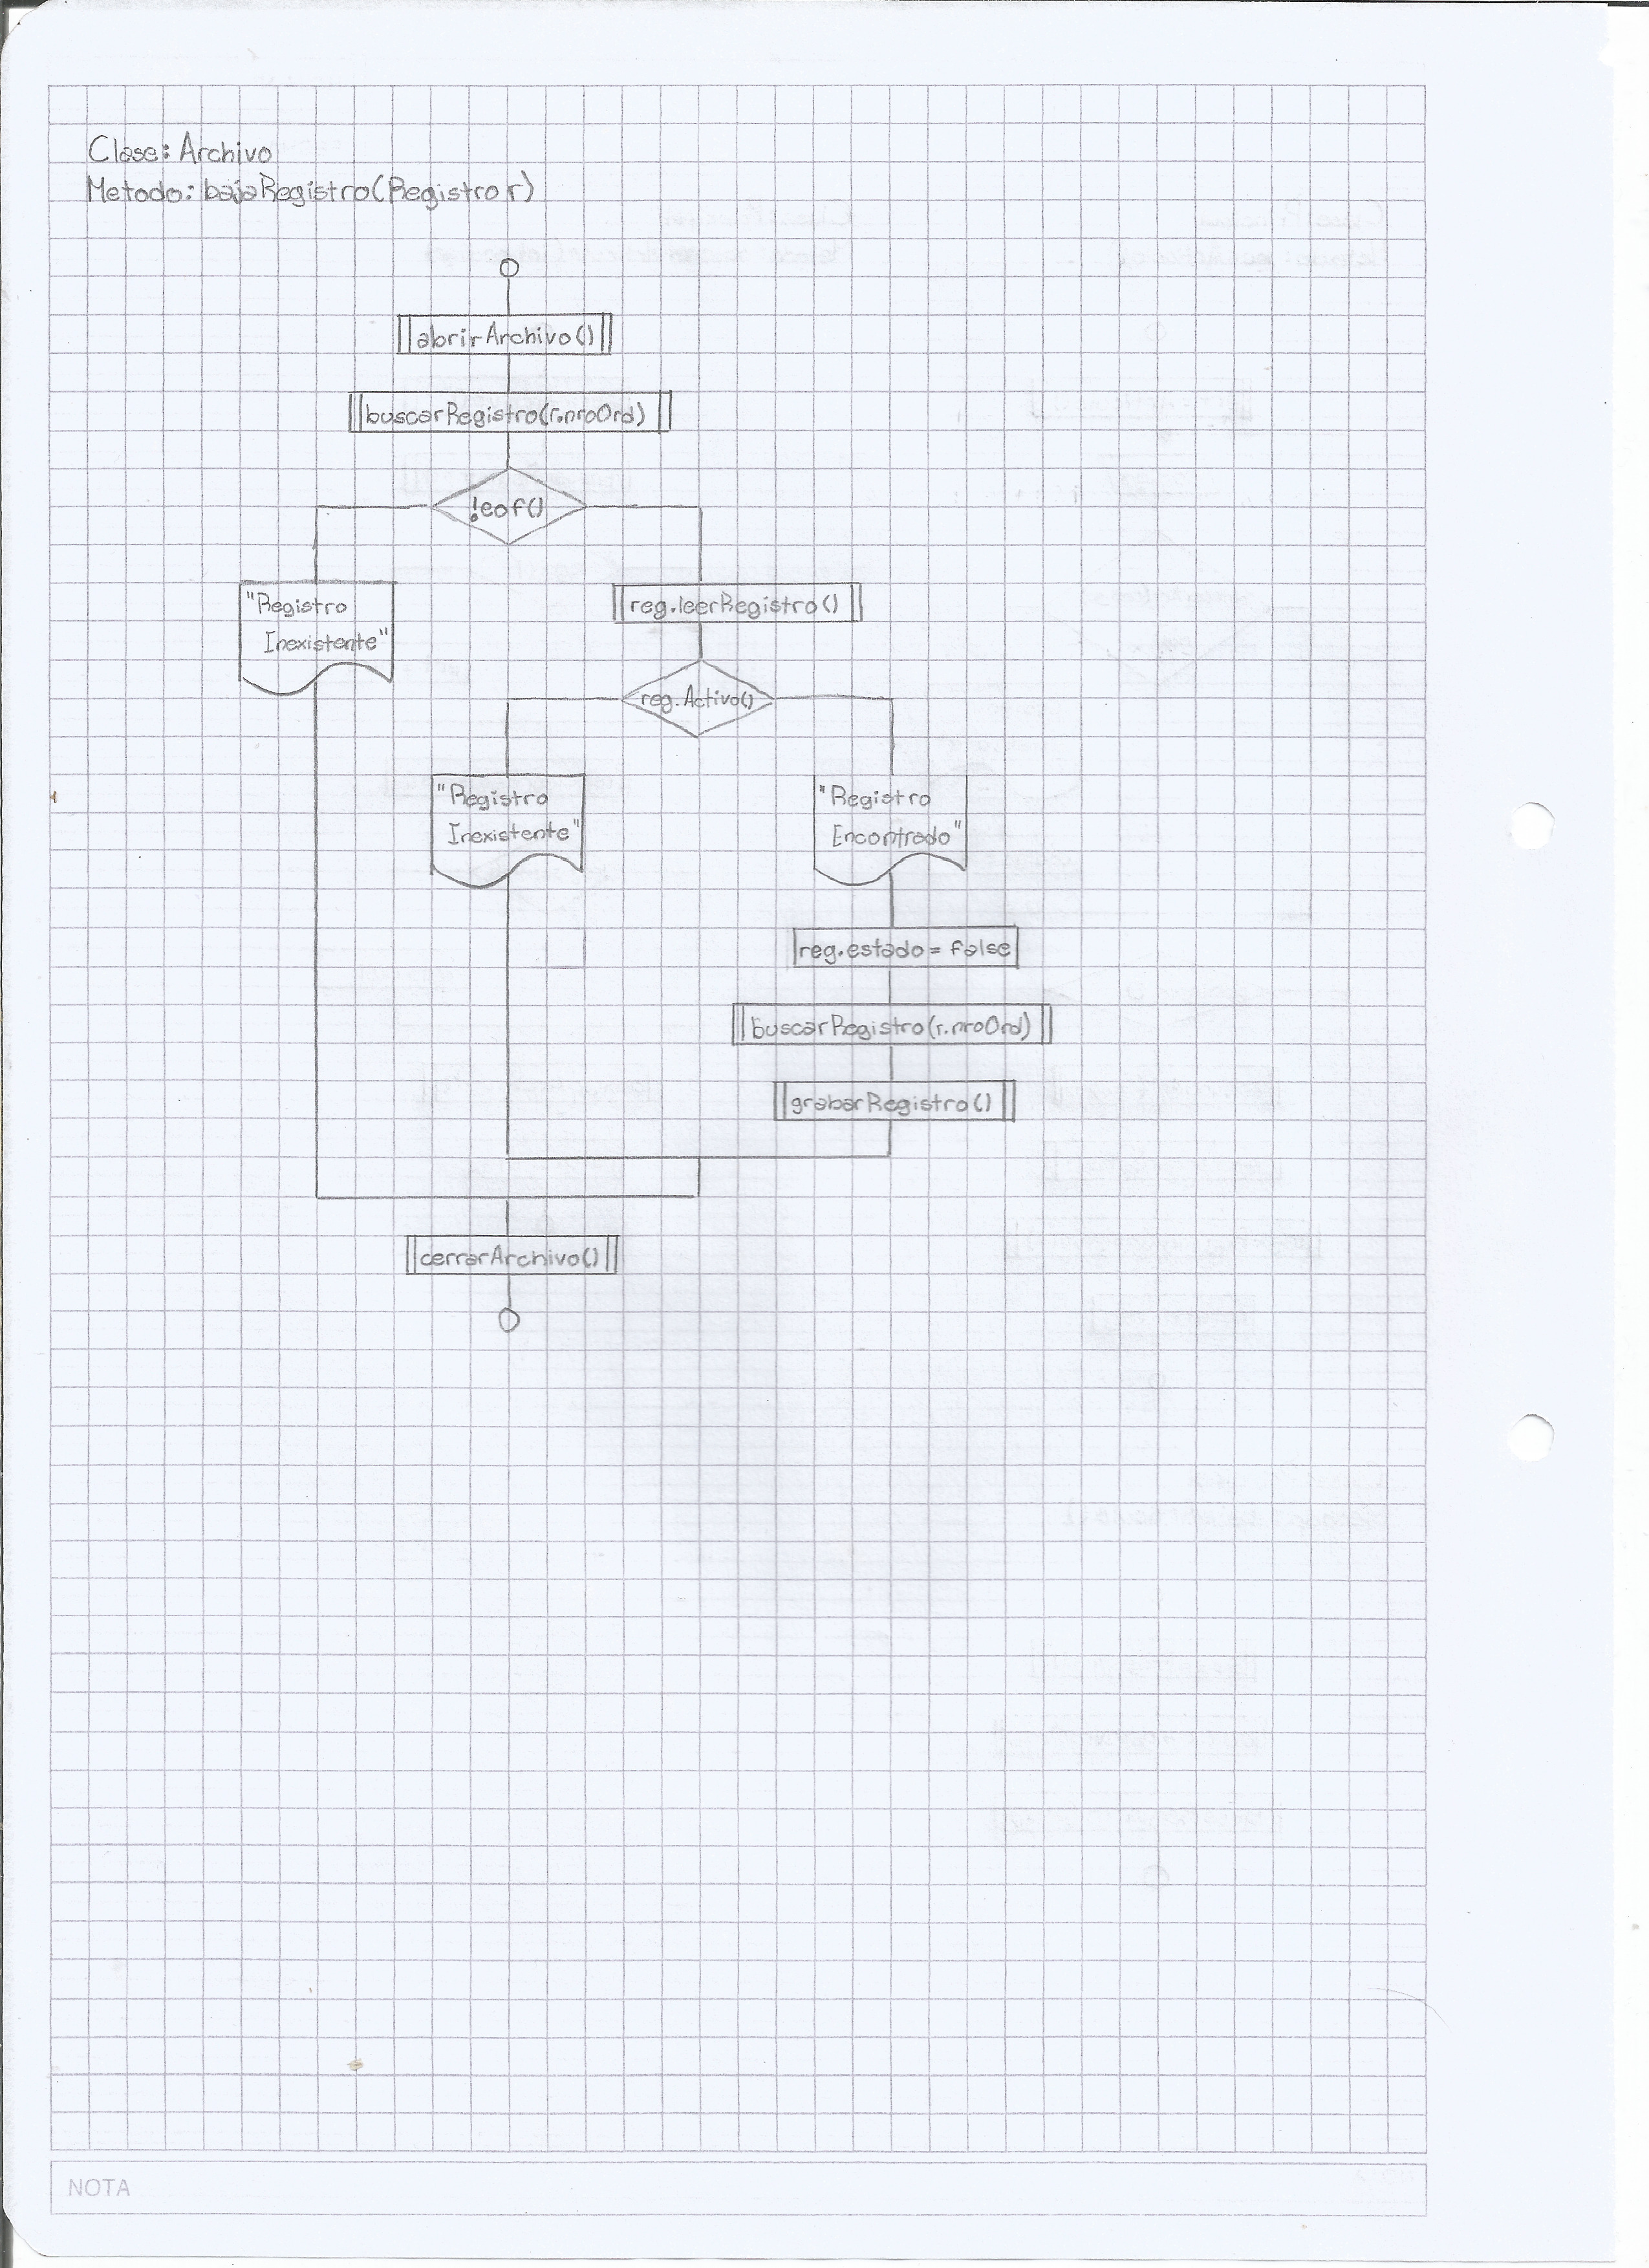 Clase: Archivo
Metodo: bajaRegistro(Registro r)
abrirArchivo()
buscarRegistro(r.nroOrd)
!eof()
"Registro
Inexistente"
reg.leerRegistro()
reg.Activo()
"Registro
Inexistente"
"Registro
Encontrado"
reg.estado = false
buscarRegistro(r.nroOrd)
grabarRegistro()
cerrarArchivo()
NOTA